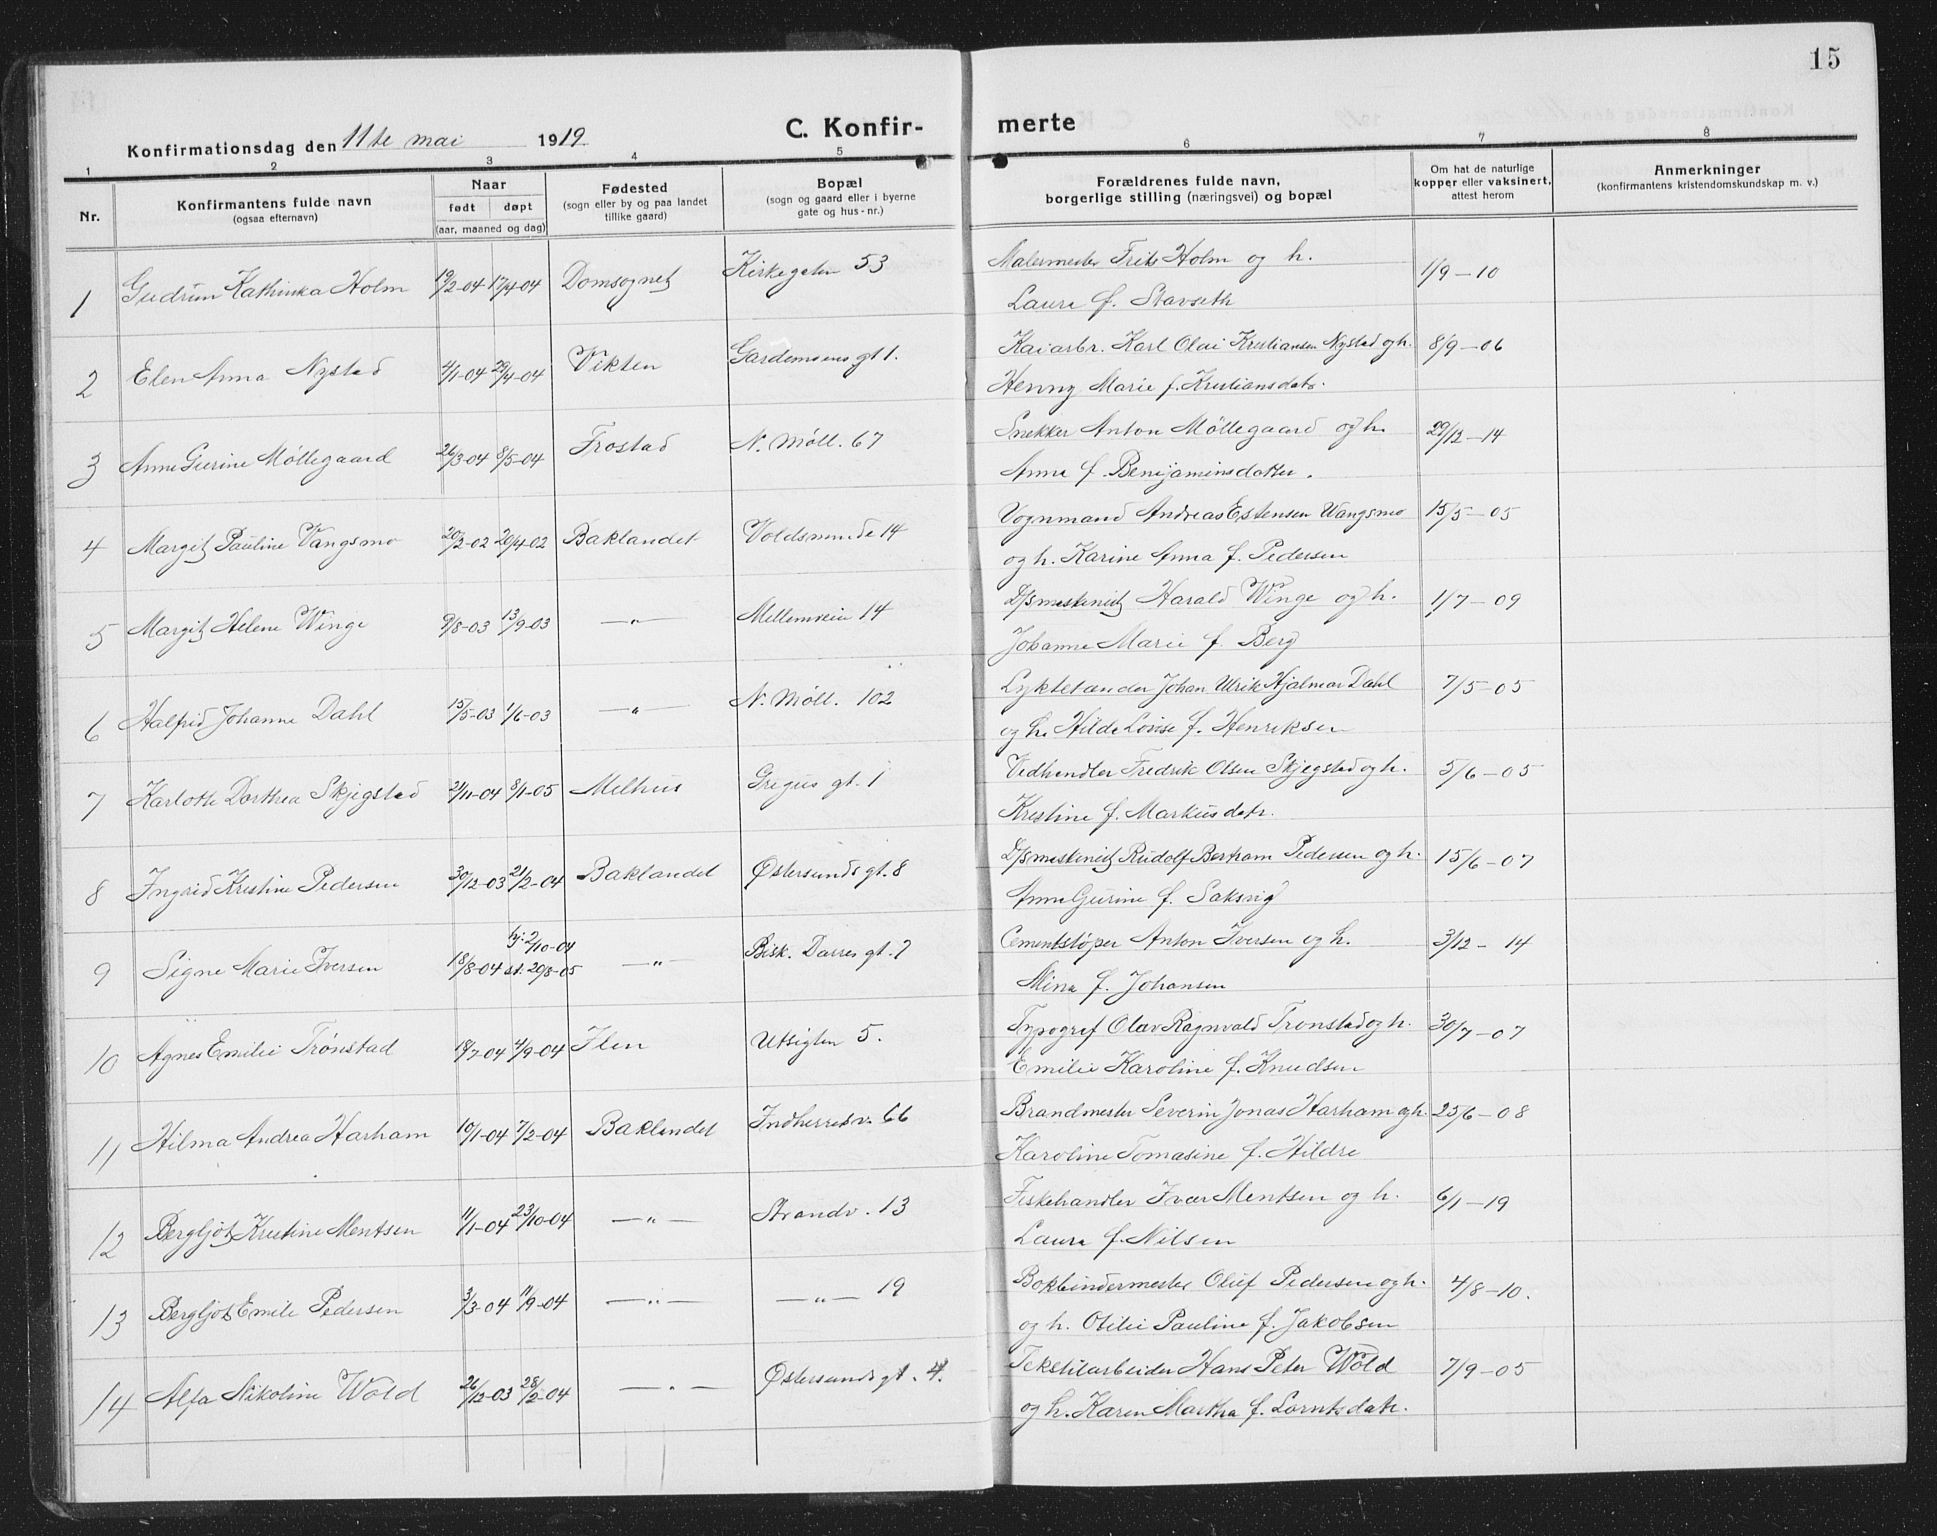 15
C. Konfirmerte
Konfirmationsdag den 11te mai 1919.
1 2 3 4 5 6 7 8
Nr.
Konfirmantens fulde navn
(ogsaa efternavn)
Naar
født døpt
(aar, maaned og dag)
Fødested
(sogn eller by og paa landet
tillike gaard)
Bopæl
(sogn og gaard eller i byerne
gate og hus-nr.)
Forældrenes fulde navn,
borgerlige stilling (næringsvei) og bopæl
Om hat de naturlige
kopper eller vaksinert,
attest herom
Anmerkninger
(konfirmantens kristendomskundskap m. v.)
1 Gudrun Kathinka Holm 19/2-04 17/4-04 Domsognet Kirkegaten 53 Malermester Frits Holm og h. 1/9-10
Laura f. Stavseth
2 Elen Anna Nystad 4/1-04 29/4-04 Vikten Gardemoens gt 1. Kaiarbr. Karl Olai Kristiansen Nystad og h. 8/9-06
Henny Marie f. Kristiansdatr.
3 Anne Gurine Møllegaard 26/3-04 8/5-04 Frostad N. Møll. 67 Snekker Anton Møllegaard og h. 29/12-14
Anna f. Benjaminsdatter.
4 Margit Pauline Vangsmo 20/2-02 20/4-02 Baklandet Voldsminde 14 Vognmand Andreas Estensen Wangsmo 15/5-05
og h. Karine Anna f. Pedersen
5 Margit Helene Winge 9/8-03 13/9-03 —"— Mellemveien 14 D/smaskinist Harald Winge og h. 1/7-09
Johanne Marie f. Berg
6 Halfrid Johanne Dahl 15/5-03 1/6-03 —"— N. Møll. 102 Lyktetænder Johan Ulrik Hjalmar Dahl 7/5-05
og h. Hilde Lovise f. Henriksen
7 Karlotte Dorthea Skjegstad 21/11-04 8/1-05 Melhus Gregus gt. 1 Vedhandler Fredrik Olsen Skjegstad og h. 5/6-05
Kristine f. Markusdatr.
8 Ingrid Kristine Pedersen 30/12-03 21/2-04 Baklandet Østersunds gt. 8 D/smaskinist Rudolf Bertram Pedersen og h. 15/6-07
Anne Gurine f. Saksvig
9 Signe Marie Iversen 18/8-04 hj. 2/10-04 —"— Bisk. Darres gt. 7 Cementstøper Anton Iversen og h. 3/12-14
st. 20/8-05 Mina f. Johansen
10 Agnes Emilie Trønstad 18/7-04 4/9-04 Ilen Utsigten 5. Typograf Olav Ragnvald Tronstad og h. 30/7-07
Emilie Karoline f. Knudsen
11 Hilma Andrea Harham 10/1-04 7/2-04 Baklandet Indherredsv. 66 Brandmester Severin Jonas Harham og h. 25/6-08
Karoline Tomasine f. Hildre
12 Bergljot Kristine Mentsen 11/1-04 23/10-04 —"— Strandv. 13 Fiskehandler Ivar Mentsen og h. 6/1-19
Laura f. Nilsen
13 Bergljot Emilie Pedersen 3/3-04 11/9-04 —"— —"— 19 Bokbindermester Oluf Pedersen og h. 4/8-10.
og h. Otilie Pauline f. Jakobsen
14 Alfa Nikoline Wold 26/12-03 28/2-04 —"— Østersunds gt. 4. Tekstilarbeider Hans Peter Wold 7/9-05
og h. Karen Martha f. Lorntsdatr.